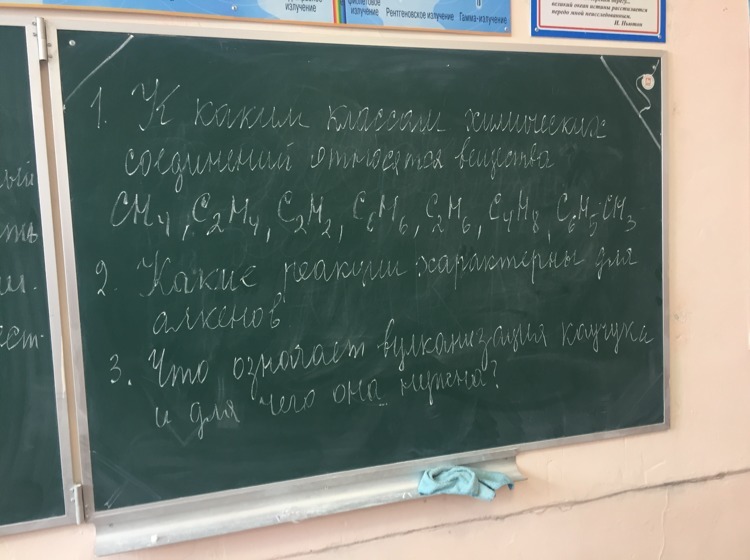 излучение
фиолетовое
излучение
Рентгеновское излучение
Гамма-излучение
великий океан истины расстилается
передо мной неисследованным.
И. Ньютон
1. К каким классам химических
соединений относятся вещества
CH4, C2H4, C2H2, C6H6, C2H6, C4H8, C6H5CH3
2. Какие реакции характерны для
алкенов
3. Что означает вулканизация каучука
и для чего она нужна?